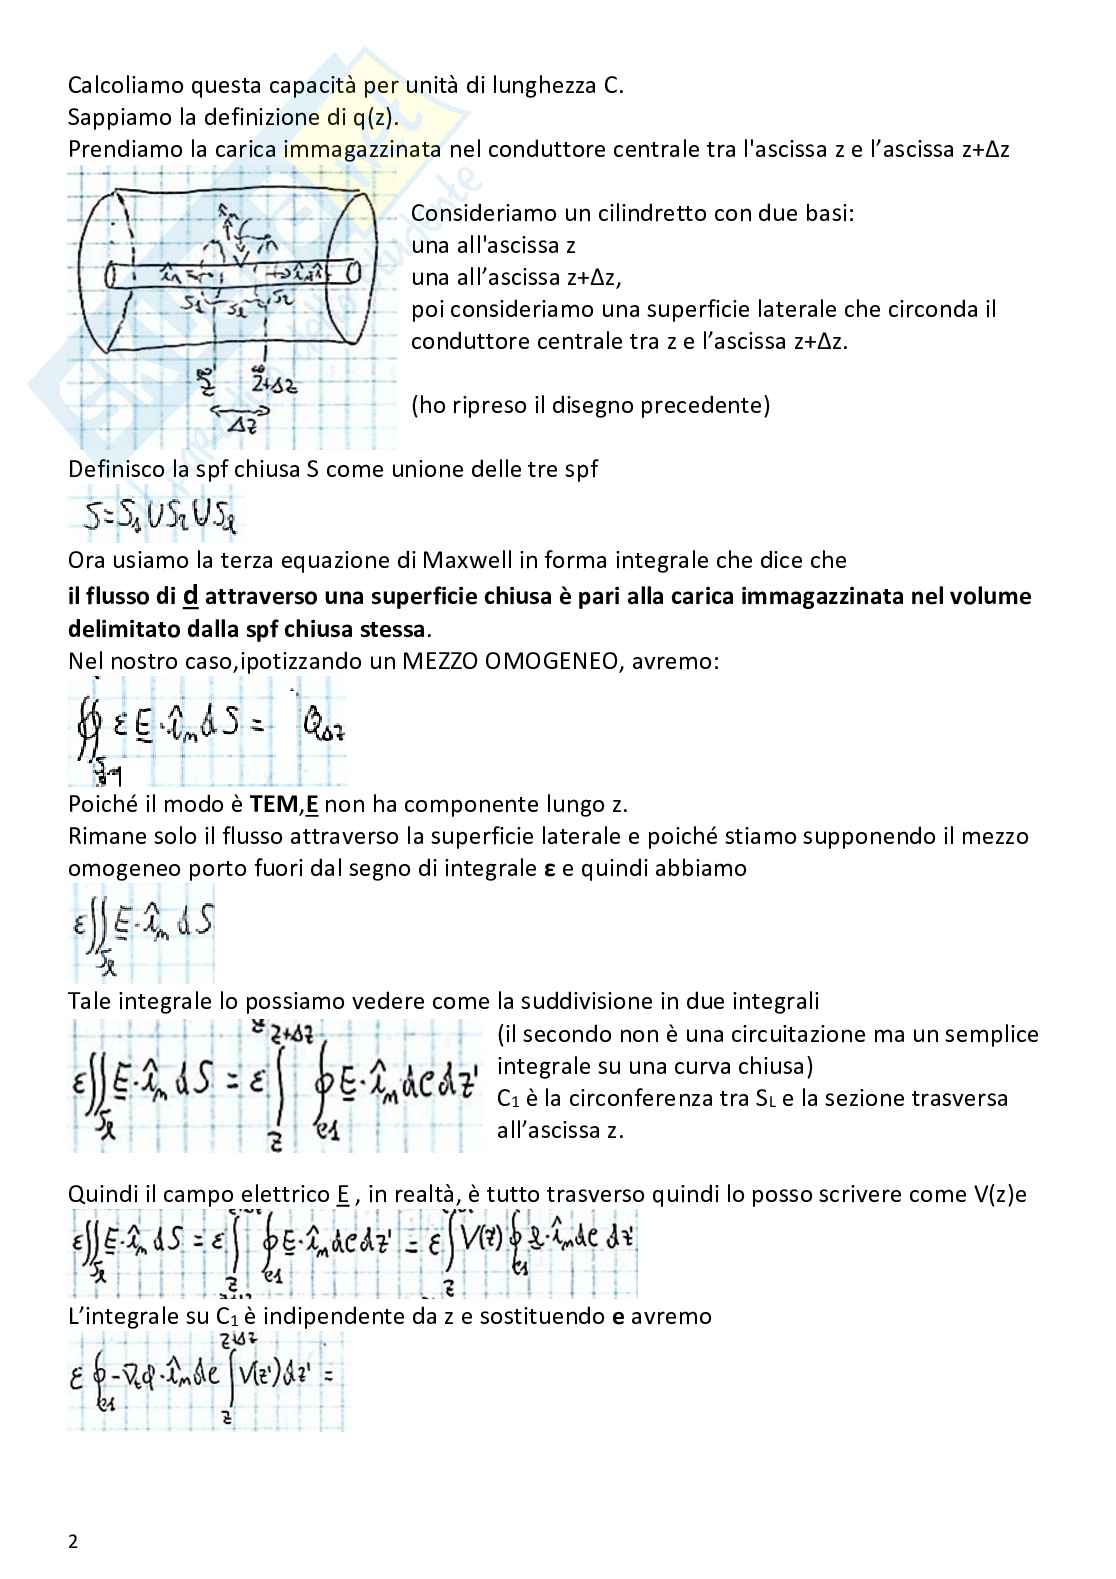 Calcoliamo questa capacità per unità di lunghezza C.
Sappiamo la definizione di q(z).
Prendiamo la carica immagazzinata nel conduttore centrale tra l'ascissa z e l’ascissa z+Δz
Consideriamo un cilindretto con due basi:
una all'ascissa z
una all’ascissa z+Δz,
poi consideriamo una superficie laterale che circonda il
conduttore centrale tra z e l’ascissa z+Δz.
(ho ripreso il disegno precedente)
z z+Δz
Δz
Definisco la spf chiusa S come unione delle tre spf
S=S₁US₂USℓ
Ora usiamo la terza equazione di Maxwell in forma integrale che dice che
il flusso di d attraverso una superficie chiusa è pari alla carica immagazzinata nel volume
delimitato dalla spf chiusa stessa.
Nel nostro caso,ipotizzando un MEZZO OMOGENEO, avremo:
∯ ε E · î_n dS = Q_Δz
Poiché il modo è TEM,E non ha componente lungo z.
Rimane solo il flusso attraverso la superficie laterale e poiché stiamo supponendo il mezzo
omogeneo porto fuori dal segno di integrale ε e quindi abbiamo
ε∬_Sℓ E · î_n dS
Tale integrale lo possiamo vedere come la suddivisione in due integrali
ε∬_Sℓ E · î_n dS = ε∫_z^z+Δz ∮_c1 E · î_n dc dz'
(il secondo non è una circuitazione ma un semplice
integrale su una curva chiusa)
C₁ è la circonferenza tra S_L e la sezione trasversa
all’ascissa z.
Quindi il campo elettrico E , in realtà, è tutto trasverso quindi lo posso scrivere come V(z)e
ε∬_Sℓ E · î_n dS = ε∫_z ∮_c1 E · î_n dc dz' = ε∫_z V(z') ∮_c1 e · î_n dc dz'
L’integrale su C₁ è indipendente da z e sostituendo e avremo
ε ∮_c1 -∇_tφ · î_n dc ∫_z^z+Δz V(z')dz' =
2